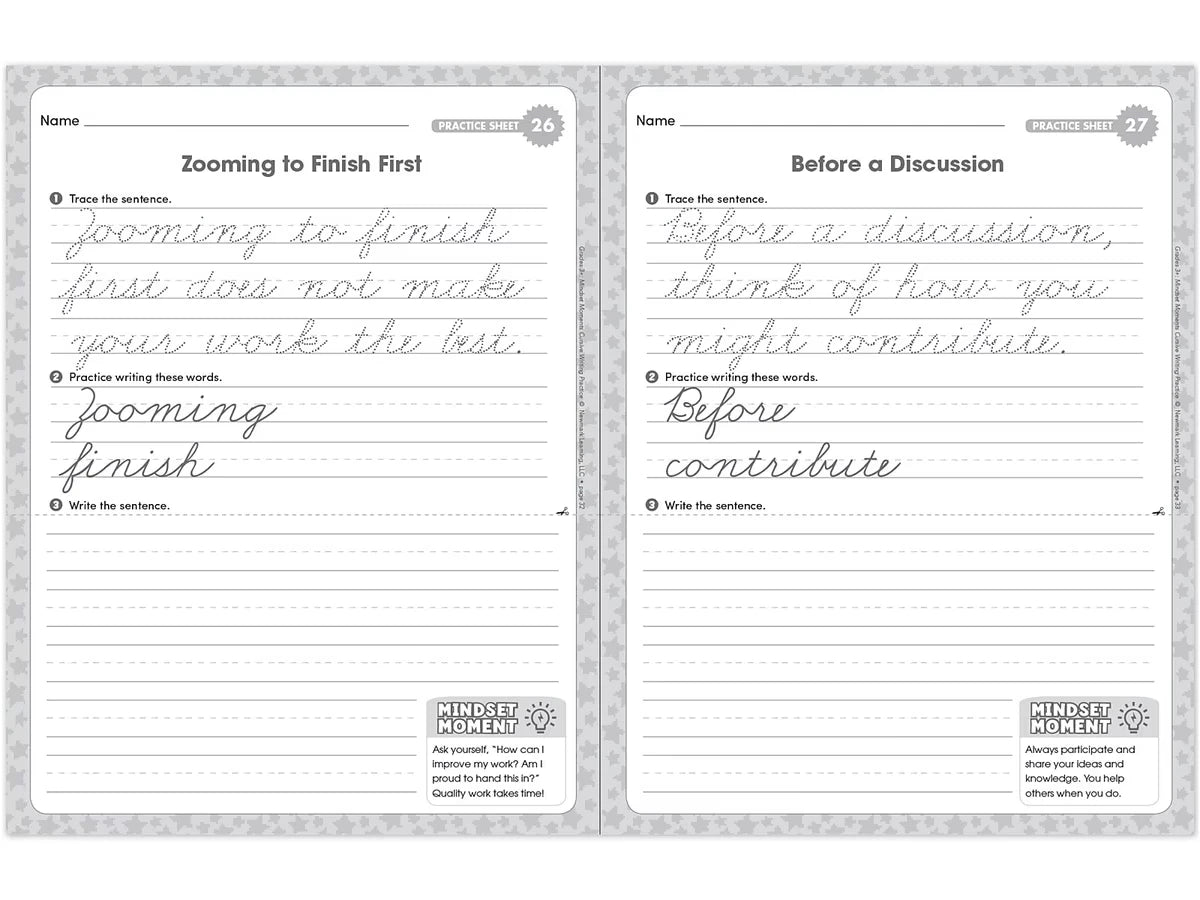 Name
PRACTICE SHEET 26
Zooming to Finish First
1 Trace the sentence.
Zooming to finish
first does not make
your work the best.
2 Practice writing these words.
Zooming
finish
3 Write the sentence.
MINDSET
MOMENT
Ask yourself, "How can I
improve my work? Am I
proud to hand this in?"
Quality work takes time!
Grades 3+: Mindset Moments Cursive Writing Practice © Newmark Learning, LLC • page 32
Name
PRACTICE SHEET 27
Before a Discussion
1 Trace the sentence.
Before a discussion,
think of how you
might contribute.
2 Practice writing these words.
Before
contribute
3 Write the sentence.
MINDSET
MOMENT
Always participate and
share your ideas and
knowledge. You help
others when you do.
Grades 3+: Mindset Moments Cursive Writing Practice © Newmark Learning, LLC • page 33